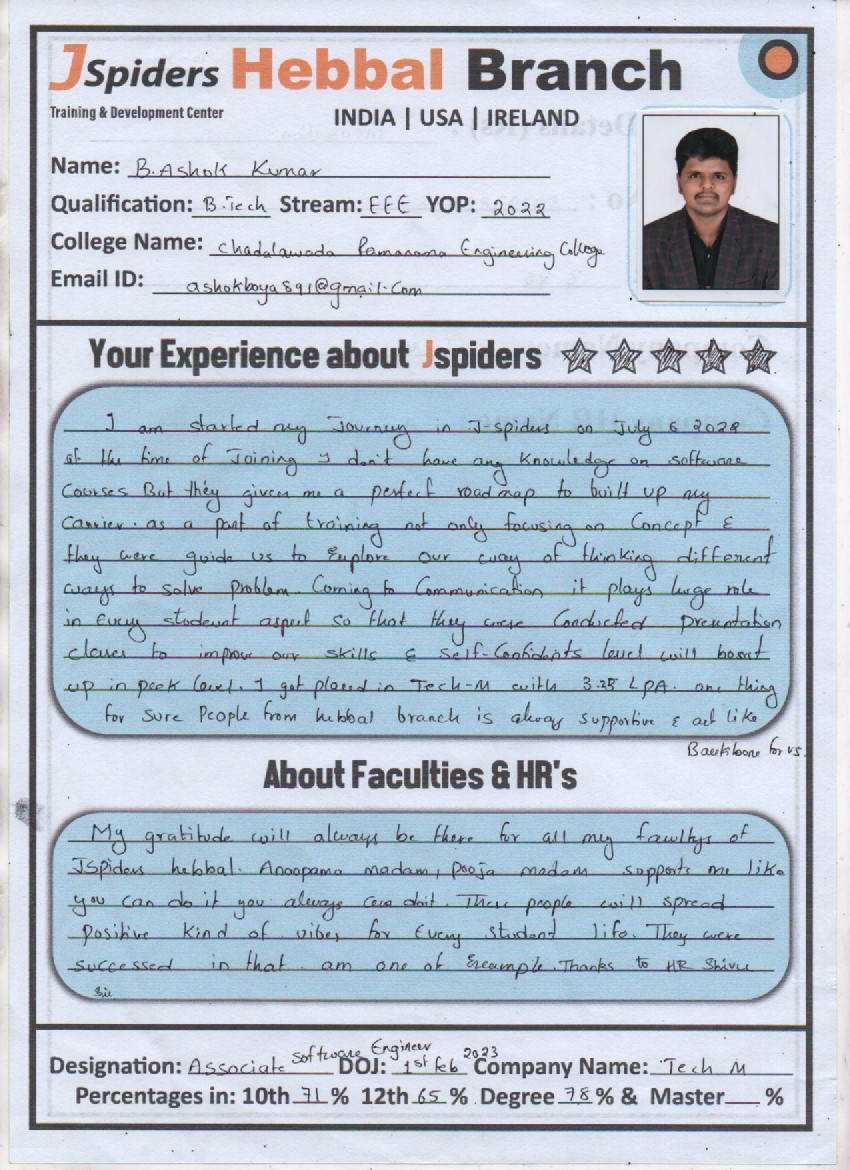 JSpiders Hebbal Branch
Training & Development Center
INDIA | USA | IRELAND
Name: B.Ashok Kumar
Qualification: B.Tech Stream: EEE YOP: 2022
College Name: Chadalawada Ramanama Engineering College
Email ID: ashokboya891@gmail.com
Your Experience about Jspiders
I am started my Journey in J-spiders on July 6 2022
at the time of Joining I don't have any knowledge on software
Courses But they given me a perfect roadmap to built up my
Carrier. as a part of training not only focusing on Concept &
they were guide us to Explore our way of thinking different
ways to solve problem. Coming to Communication it plays huge role
in Every student aspect so that they were Conducted presentation
classes to improve our skills & Self-Confidants level will boost
up in peek level. I got placed in Tech-M with 3.25 LPA. one thing
for sure People from hebbal branch is always supportive & act like
Backbone for us.
About Faculties & HR's
My gratitude will always be there for all my facultys of
JSpiders hebbal. Anoopama madam, pooja madam supports me like
you can do it you always can doit. These people will spread
Positive kind of vibes for Every student life. They were
successed in that. am one of Example. Thanks to HR Shivu
Sir
Designation: Associate Software Engineer DOJ: 1st feb 2023 Company Name: Tech M
Percentages in: 10th 71 % 12th 65 % Degree 78 % & Master %